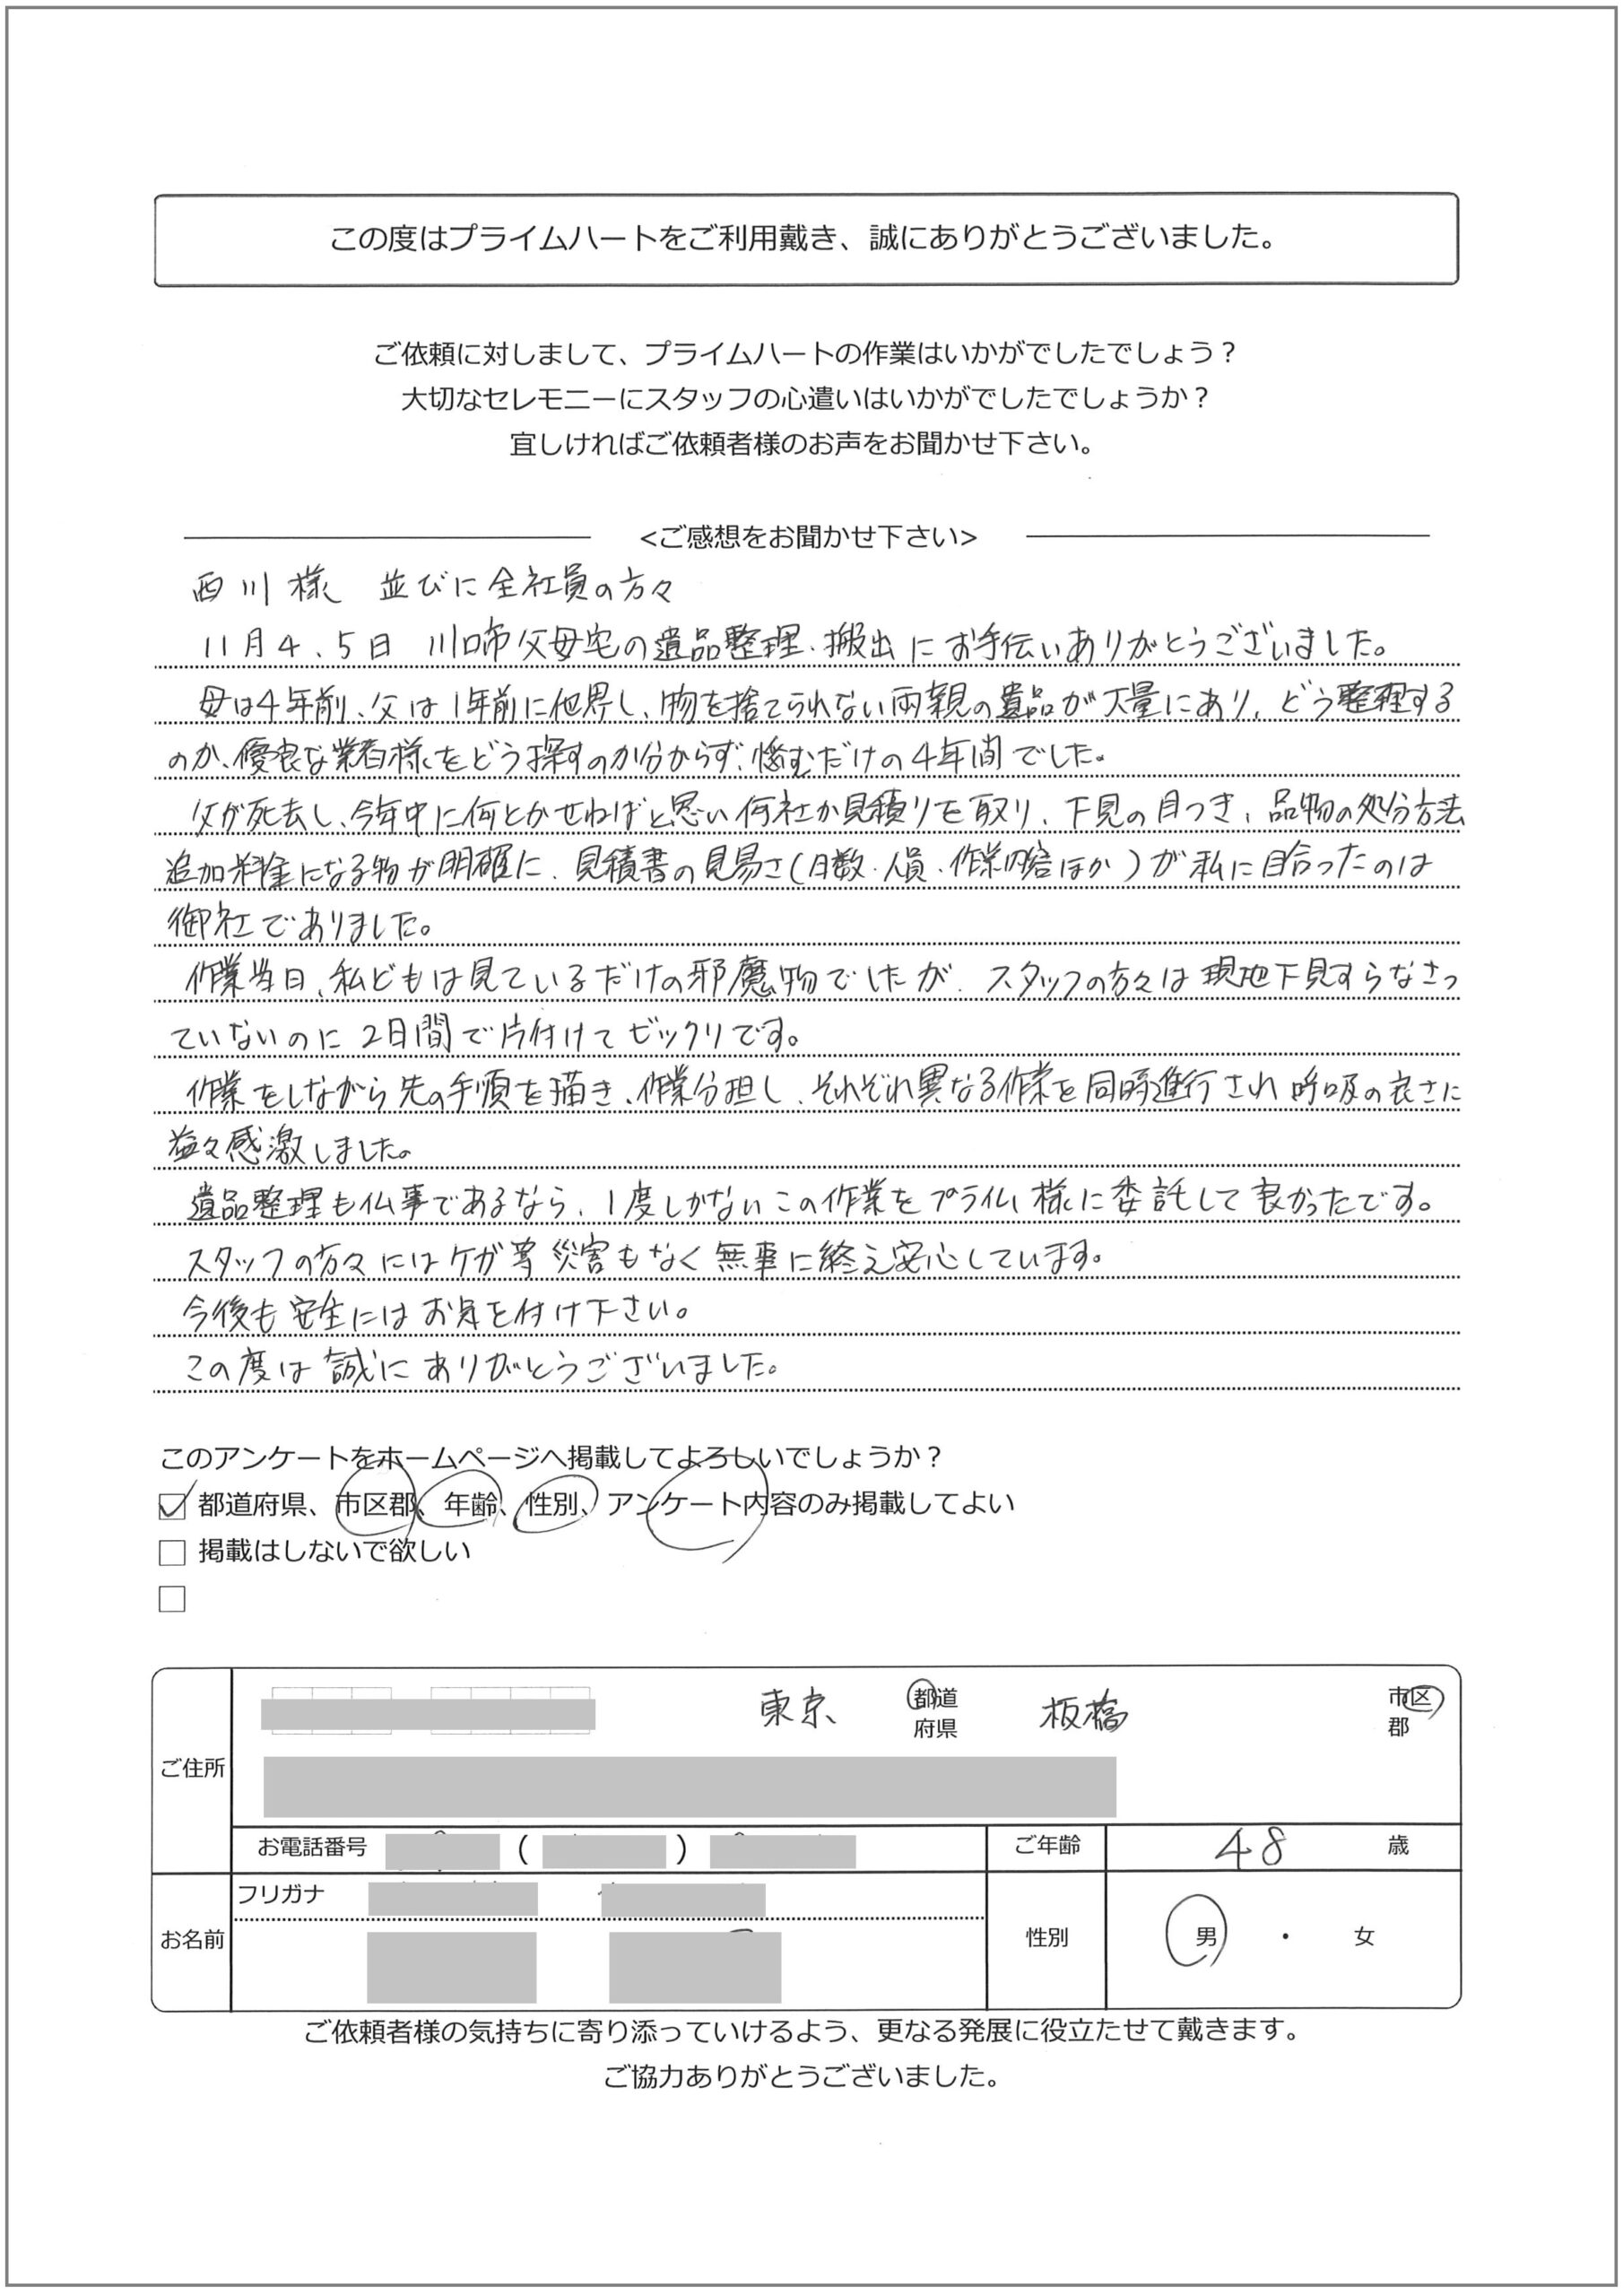 この度はプライムハートをご利用戴き、誠にありがとうございました。
ご依頼に対しまして、プライムハートの作業はいかがでしたでしょう？
大切なセレモニーにスタッフの心遣いはいかがでしたでしょうか？
宜しければご依頼者様のお声をお聞かせ下さい。
<ご感想をお聞かせ下さい>
西川様 並びに全社員の方々
11月4、5日 川口市父母宅の遺品整理、搬出にお手伝いありがとうございました。
母は4年前、父は1年前に他界し、物を捨てられない両親の遺品が大量にあり、どう整理する
のか、優良な業者様をどう探すのか分からず、悩むだけの4年間でした。
父が死去し、今年中に何とかせねばと思い何社か見積りを取り、下見の目つき、品物の処分方法
追加料金になる物が明確に、見積書の見易さ(日数・人員・作業内容ほか)が私に見合ったのは
御社でありました。
作業当日、私どもは見ているだけの邪魔物でしたが、スタッフの方々は現地下見すらなさっ
ていないのに2日間で片付けてビックリです。
作業をしながら先の手順を描き、作業分担し、それぞれ異なる作業を同時進行され呼吸の良さに
益々感激しました。
遺品整理も仏事であるなら、1度しかないこの作業をプライム様に委託して良かったです。
スタッフの方々にはケガ等災害もなく無事に終え安心しています。
今後も安全にはお気を付け下さい。
この度は誠にありがとうございました。
このアンケートをホームページへ掲載してよろしいでしょうか？
都道府県、市区郡、年齢、性別、アンケート内容のみ掲載してよい
掲載はしないで欲しい
ご住所 東京 都道府県 板橋 市区郡
お電話番号 ( ) ご年齢 48 歳
フリガナ
お名前 性別 男 ・ 女
ご依頼者様の気持ちに寄り添っていけるよう、更なる発展に役立たせて戴きます。
ご協力ありがとうございました。